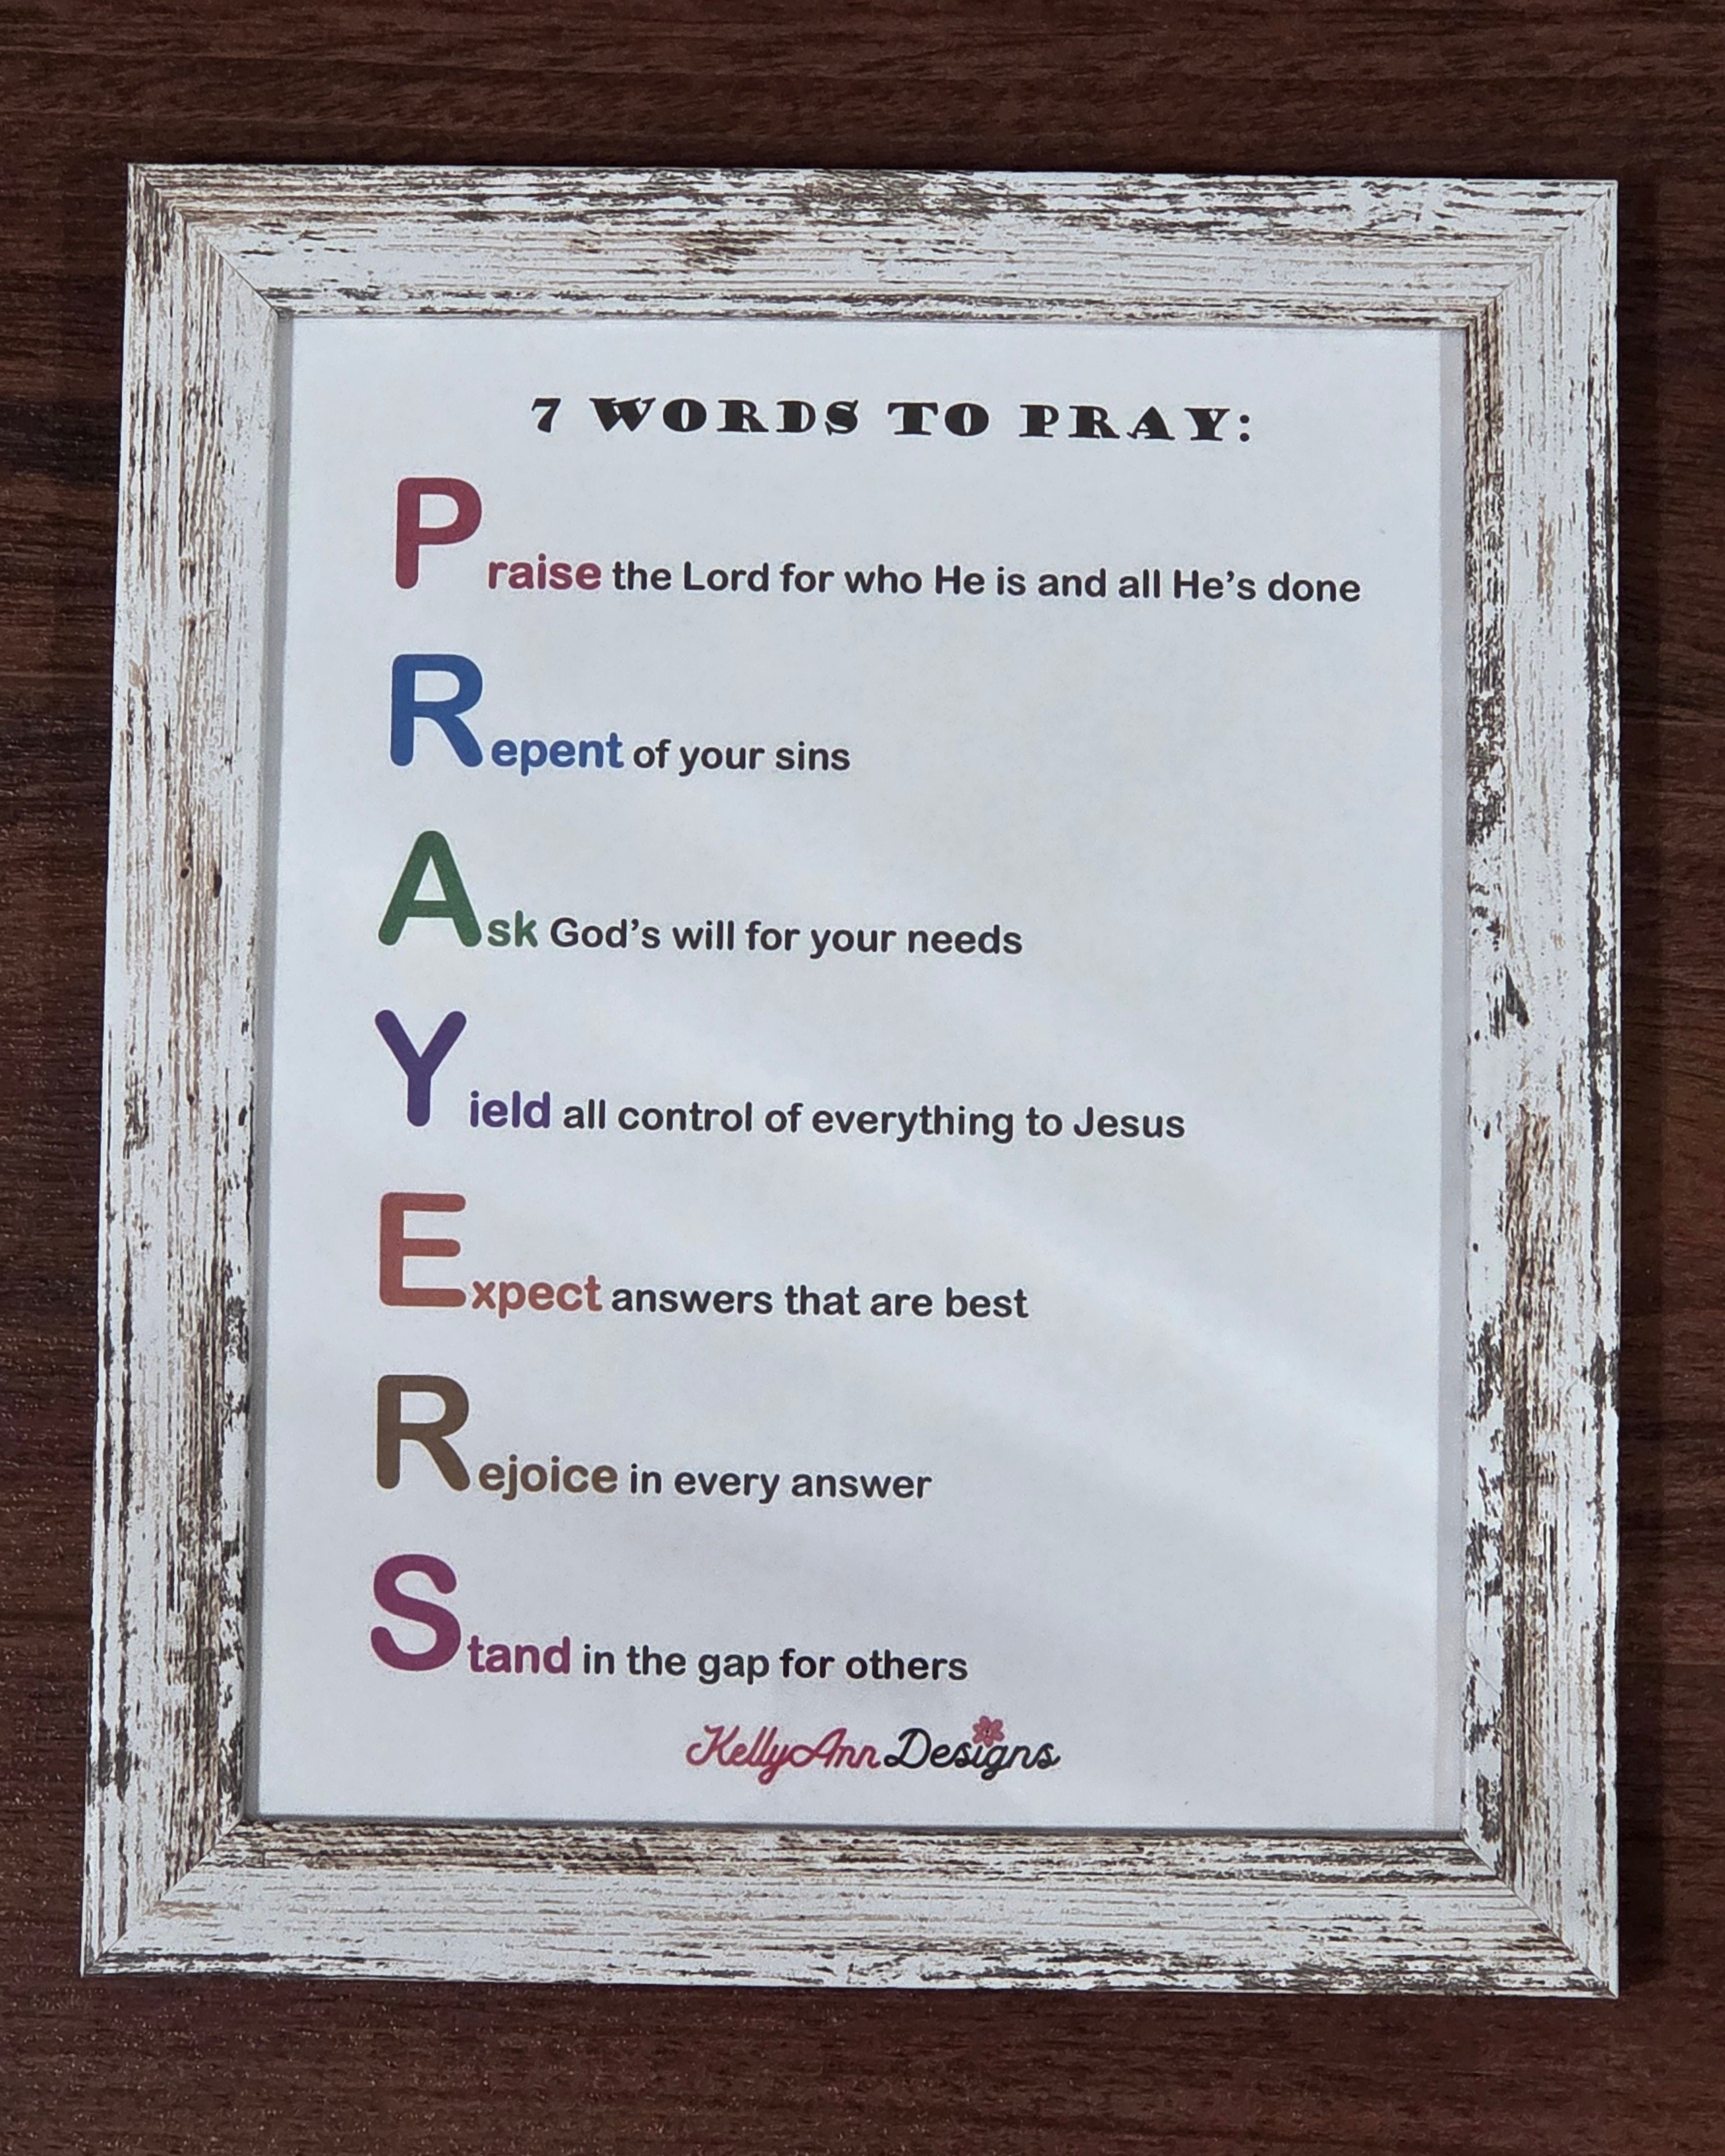 7 WORDS TO PRAY:
Praise the Lord for who He is and all He's done
Repent of your sins
Ask God's will for your needs
Yield all control of everything to Jesus
Expect answers that are best
Rejoice in every answer
Stand in the gap for others
KellyAnn Designs